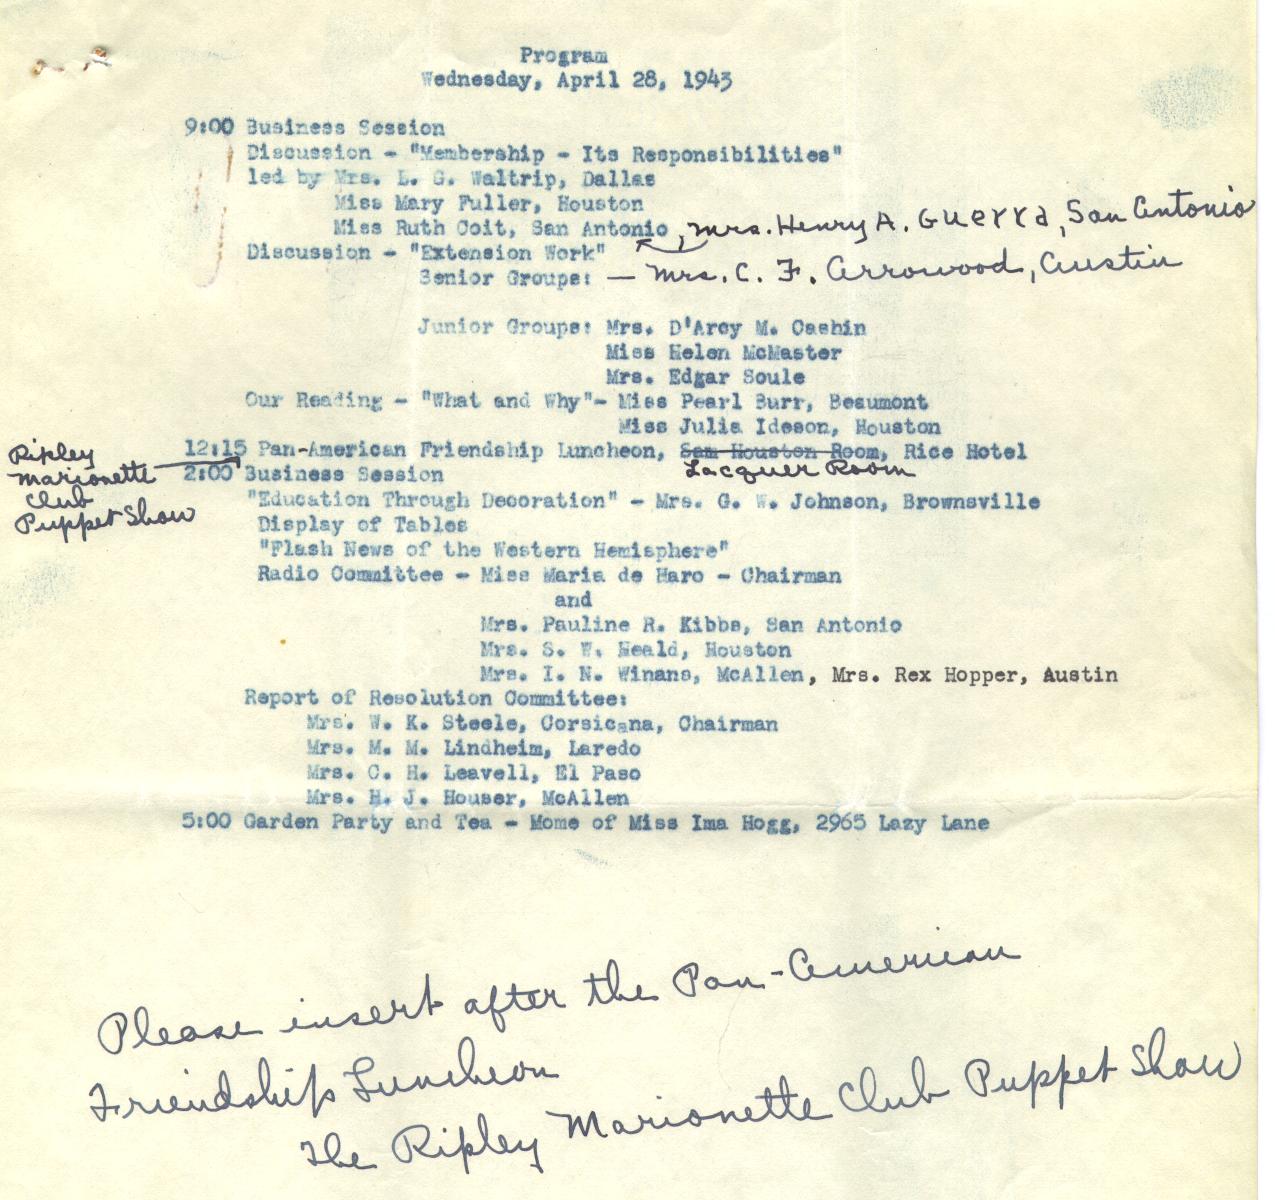 Program
Wednesday, April 28, 1943
9:00 Business Session
Discussion - "Membership - Its Responsibilities"
led by Mrs. L. G. Waltrip, Dallas
Miss Mary Fuller, Houston
Miss Ruth Coit, San Antonio, Mrs. Henry A. Guerra, San Antonio
Discussion - "Extension Work"
Senior Groups: — Mrs. C. F. Arrowood, Austin
Junior Groups: Mrs. D'Arcy M. Cashin
Miss Helen McMaster
Mrs. Edgar Soule
Our Reading - "What and Why"- Miss Pearl Burr, Beaumont
Miss Julia Ideson, Houston
12:15 Pan-American Friendship Luncheon, Sam Houston Room, Rice Hotel
Lacquer Room
Ripley
Marionette
Club
Puppet Show
2:00 Business Session
"Education Through Decoration" - Mrs. G. W. Johnson, Brownsville
Display of Tables
"Flash News of the Western Hemisphere"
Radio Committee - Miss Maria de Haro - Chairman
and
Mrs. Pauline R. Kibbe, San Antonio
Mrs. S. W. Heald, Houston
Mrs. I. N. Winans, McAllen, Mrs. Rex Hopper, Austin
Report of Resolution Committee:
Mrs. W. K. Steele, Corsicana, Chairman
Mrs. M. M. Lindheim, Laredo
Mrs. C. H. Leavell, El Paso
Mrs. H. J. Houser, McAllen
5:00 Garden Party and Tea - Mome of Miss Ima Hogg, 2965 Lazy Lane
Please insert after the Pan-American
Friendship Luncheon
The Ripley Marionette Club Puppet Show